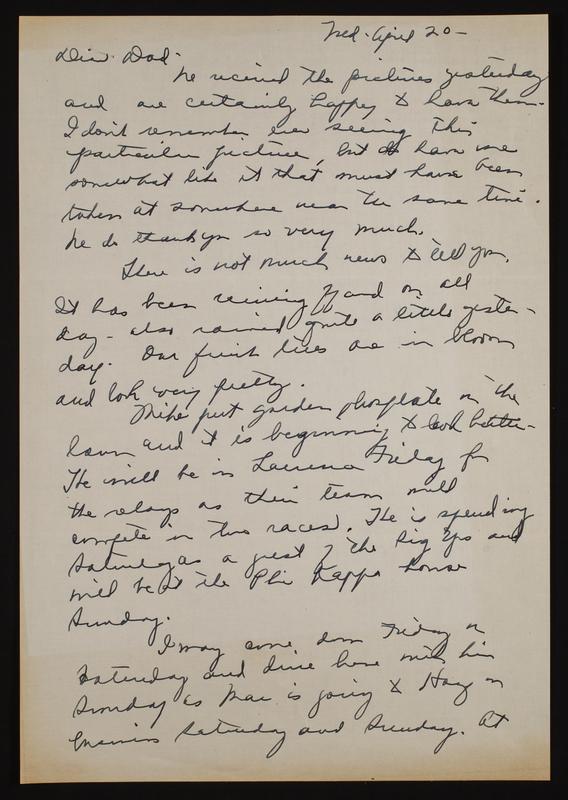 Wed. April 20 -
Dear Dad -
We received the pictures yesterday
and are certainly happy to have them.
I don't remember ever seeing this
particular picture, but do have one
somewhat like it that must have been
taken at somewhere near the same time.
We do thank you so very much.
There is not much news to tell you.
It has been raining off and on all
day - also rained quite a little yester-
day. Our fruit trees are in bloom
and look very pretty.
Mike put garden phosphate on the
lawn and it is beginning to look better.
He will be in Lawrence Friday for
the relays as their team will
compete in two races. He is spending
Saturday as a guest of the Sig Eps and
will be at the Phi Kappa house
Sunday.
I may come down Friday or
Saturday and drive home with him
Sunday as Mac is going to Hays on
business Saturday and Sunday. At